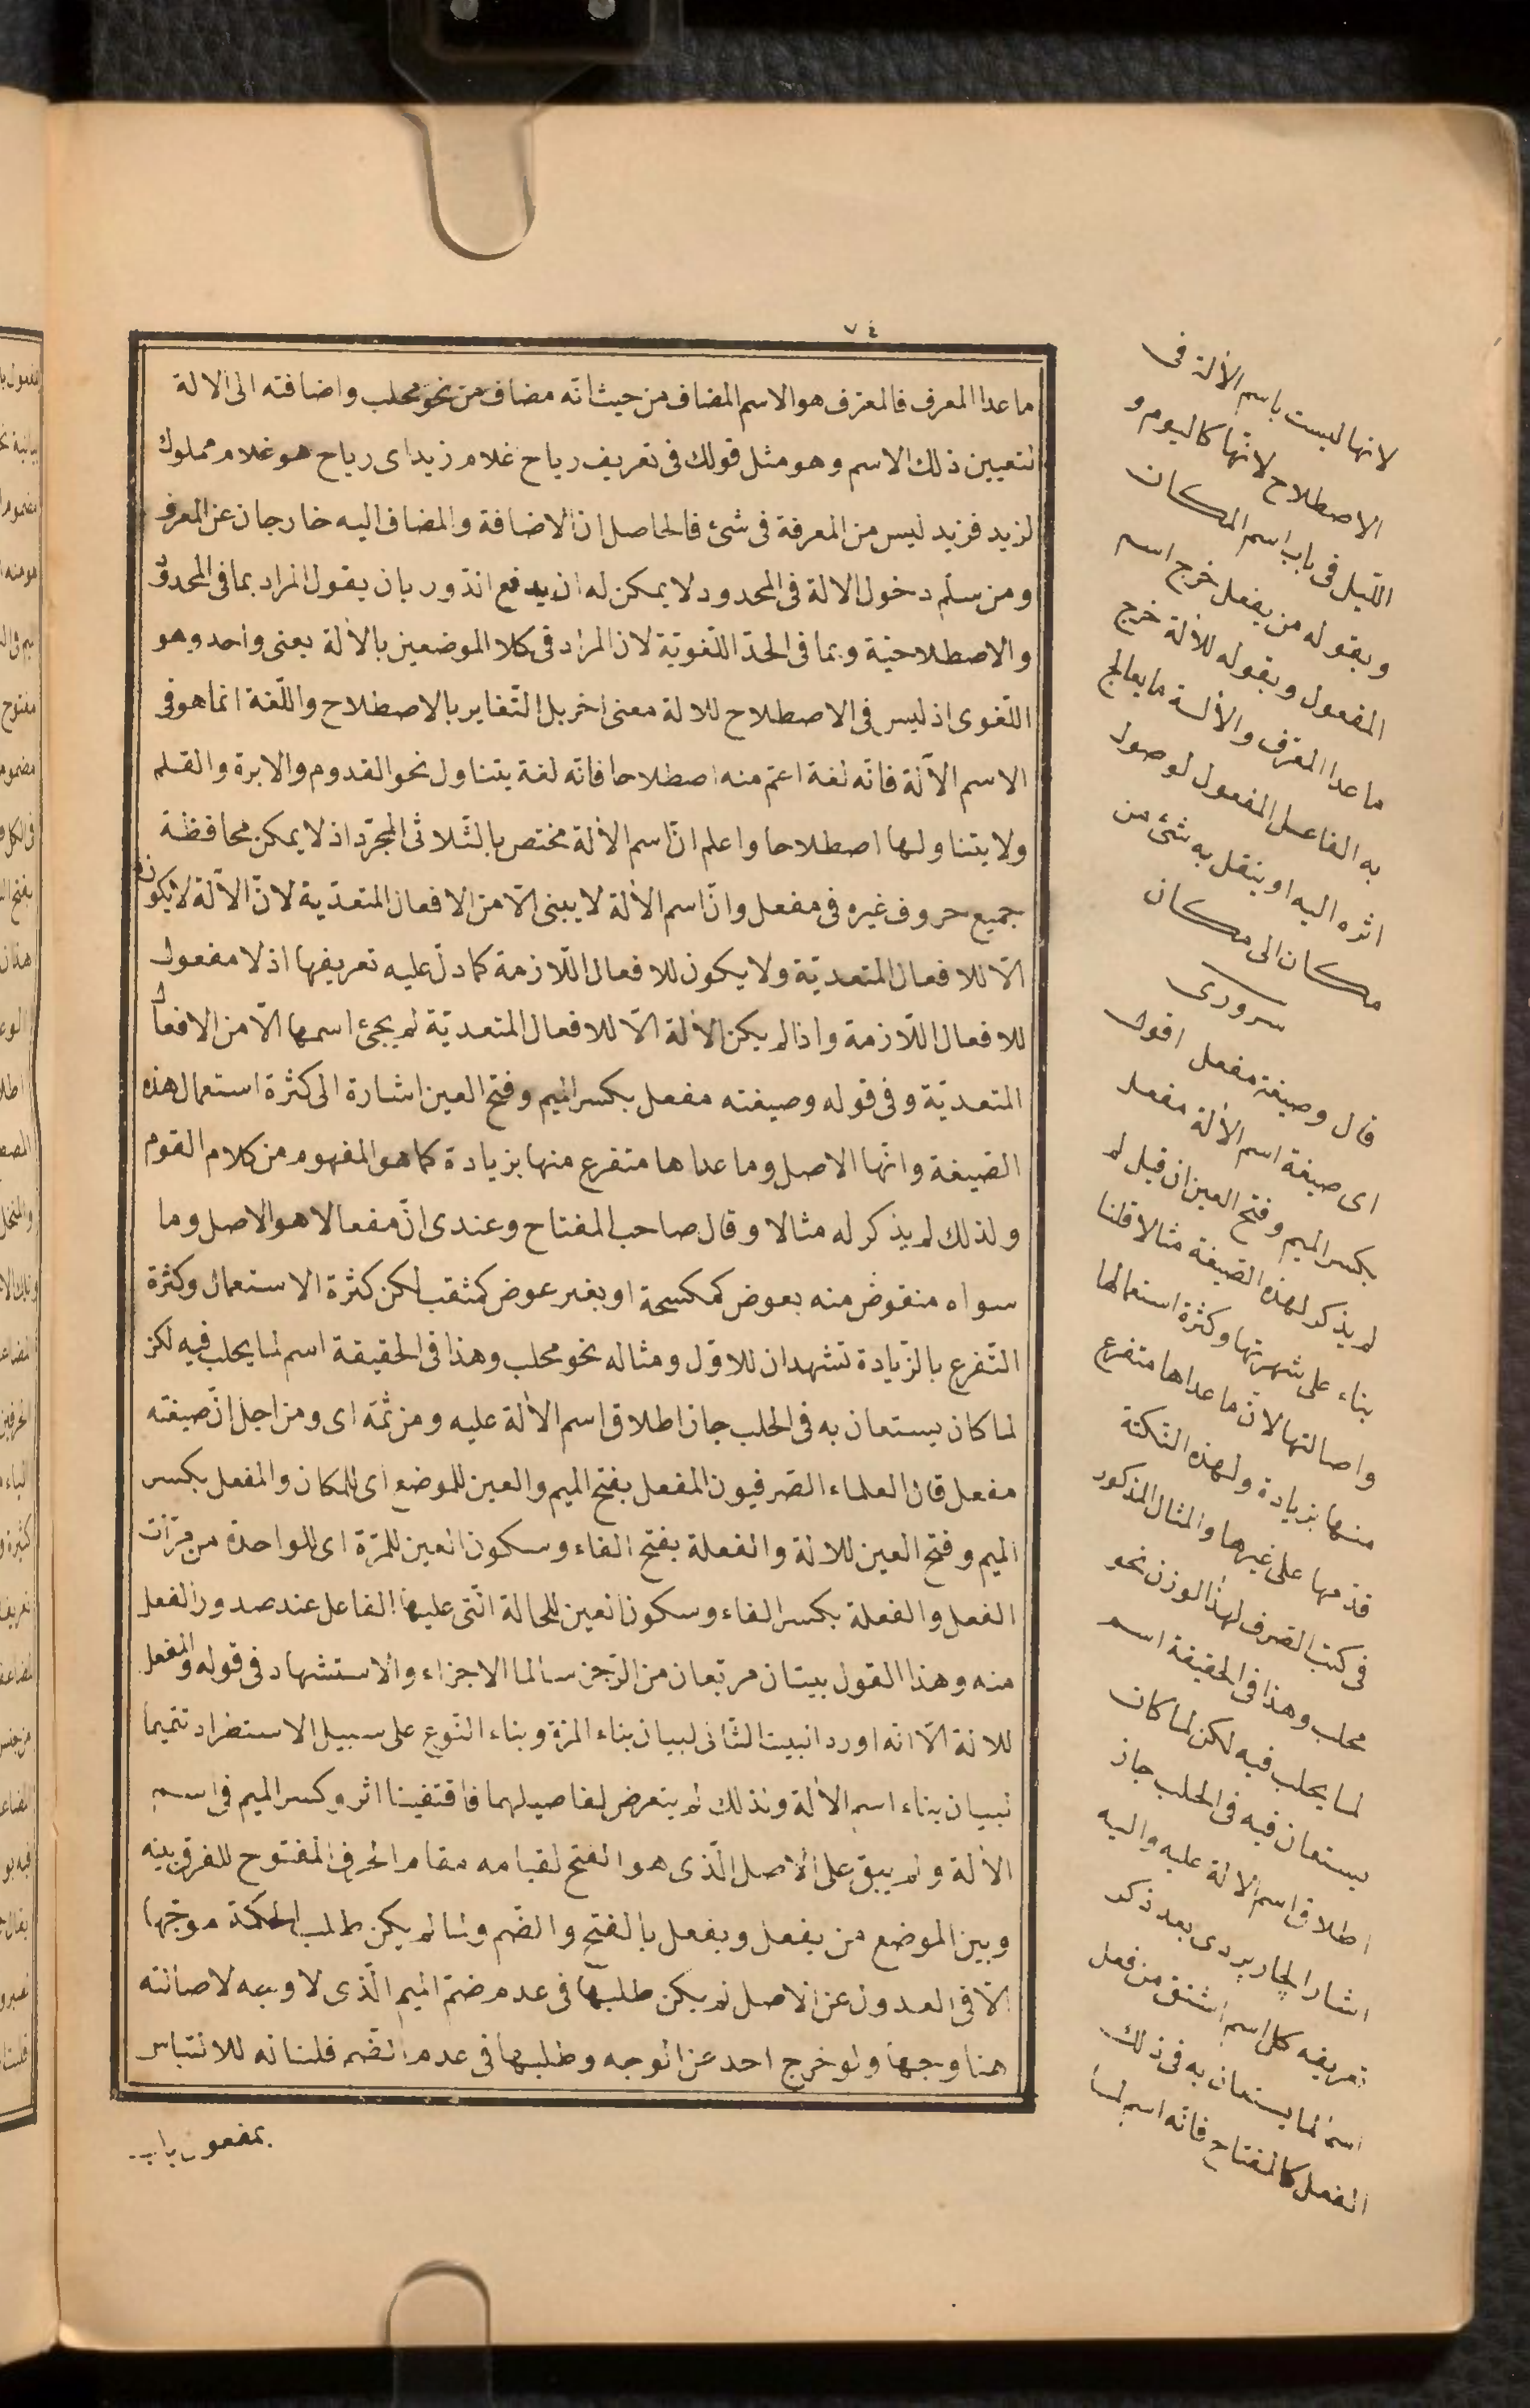 ٧٤
ما عدا المعرف فالمعرف هو الاسم المضاف من حيث انّه مضاف من نحو محلب واضافته الى الالة
لتعيين ذلك الاسم وهو مثل قولك فى تعريف رياح غلام زيد اى رياح هو غلام مملوك
لزيد فزيد ليس من المعرفة فى شئ فالحاصل ان الاضافة والمضاف اليه خارجان عن المعرف
ومن سلّم دخول الالة فى المحدود لا يمكن له ان يدفع الدّور بان يقول المراد بما فى المحدود
والاصطلاحيّة وبما فى الحدّ اللّغويّة لان المراد فى كلا الموضعين بالألة بمعنى واحد وهو
اللّغوى اذ ليس فى الاصطلاح للالة معنى اخر بل التّغاير بالاصطلاح واللّغة انما هو فى
الاسم الآلة فانّه لغة اعمّ منه اصطلاحا فانّه لغة يتناول نحو القدوم والابرة والقلم
ولا يتناولها اصطلاحا واعلم انّ اسم الألة مختص بالثّلاثى المجرّد اذ لا يمكن محافظة
جميع حروف غيره فى مفعل وانّ اسم الألة لا يبنى الّا من الافعال المتعدّية لانّ الآلة لا يكون
الّا للافعال المتعديّة ولا يكون للافعال اللّازمة كما دلّ عليه تعريفها اذ لا مفعول
للافعال اللّازمة واذا لم يكن الألة الّا للافعال المتعديّة لم يجئ اسمها الّا من الافعال
المتعديّة وفى قوله وصيغته مفعل بكسر الميم وفتح العين اشارة الى كثرة استعمال هذه
الصّيغة وانّها الاصل وما عداها متفرع منها بزيادة كما هو المفهوم من كلام القوم
ولذلك لم يذكر له مثالا وقال صاحب المفتاح وعندى انّ مفعالا هو الاصل وما
سواه منقوض منه بعوض كمكسحة او بغير عوض كمثقب لكن كثرة الاستعمال وكثرة
التّفرع بالزّيادة تشهدان للاوّل ومثاله نحو محلب وهذا فى الحقيقة اسم لما يحلب فيه لكن
لما كان يستعان به فى الحلب جاز اطلاق اسم الألة عليه ومن ثمّه اى ومن اجل انّ صيغته
مفعل قال العلماء الصّرفيون المفعل بفتح الميم والعين للموضع اى للمكان والمفعل بكسر
الميم وفتح العين للالة والفعلة بفتح الفاء وسكون العين للمرّة اى للواحدة من مرّات
الفعل والفعلة بكسر الفاء وسكون العين للحالة الّتى عليها الفاعل عند صدور الفعل
منه وهذا القول بيتان مربّعان من الرّجز سالما الاجزاء والاستشهاد فى قوله والمفعل
للالة الّا انّه اورد البيت الثّانى لبيان بناء المرّة وبناء النّوع على سبيل الاستطراد تتميما
لبيان بناء اسم الألة ولذلك لم يتعرض لتفاصيلهما فاقتفينا اثره وكسر الميم فى اسم
الألة ولم يبق على الأصل الّذى هو الفتح لقيامه مقام الحرف المفتوح للفرق بينه
وبين الموضع من يفعل ويفعل بالفتح والضّم ولما لم يكن طلب الحكمة موجّها
الّا فى العدول عن الاصل لم يكن طلبها فى عدم ضمّ الميم الّذى لا وجه لاصالته
هنا وجها ولو خرج احد عن الوجه وطلبها فى عدم الضّم قلنا انه للالتباس
بمفعول باب
لانها ليست باسم الألة فى
الاصطلاح لانّها كاليوم و
اللّيل فى باب اسم المكان
وبقوله من يفعل خرج اسم
المفعول وبقوله للألة خرج
ما عدا المعرّف والألة ما يعالج
به الفاعل المفعول لوصول
اثره اليه او ينقل به شئ من
مكان الى مكان
سرورى
قال وصيغته مفعل اقول
اى صيغة اسم الألة مفعل
بكسر الميم وفتح العين ان قيل لم
لم يذكر لهذه الصّيغة مثالا قلنا
بناء على شهرتها وكثرة استعمالها
واصالتها لانّ ما عداها متفرع
منها بزيادة ولهذه النّكتة
قدّمها على غيرها والمثال المذكور
فى كتب الصّرف لهذا الوزن نحو
محلب وهذا فى الحقيقة اسم
لما يحلب فيه لكن لما كان
يستعان فيه فى الحلب جاز
اطلاق اسم الالة عليه واليه
اشار الچاربردى بعد ذكر
تعريفه كل اسم اشتق من فعل
اسم لما يستعان به فى ذلك
الفعل كالمفتاح فانّه اسم لما